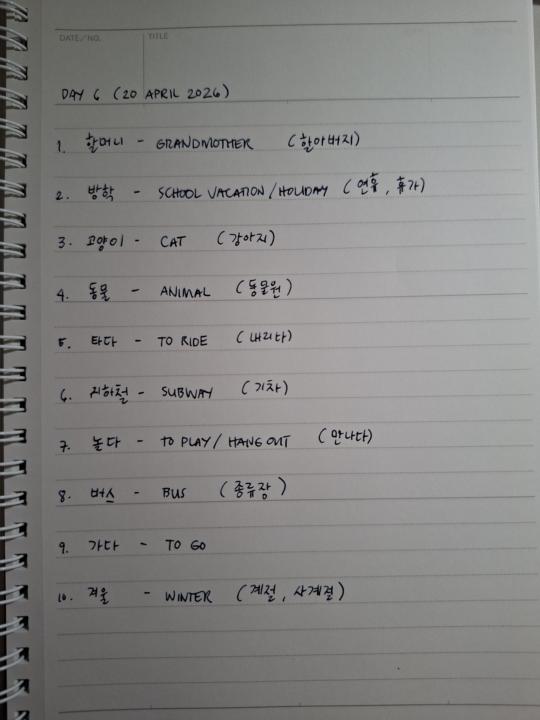 DATE/NO. TITLE
DAY 6 (20 APRIL 2026)
1. 할머니 - GRANDMOTHER (할아버지)
2. 방학 - SCHOOL VACATION/HOLIDAY (연휴, 휴가)
3. 고양이 - CAT (강아지)
4. 동물 - ANIMAL (동물원)
5. 타다 - TO RIDE (내리다)
6. 지하철 - SUBWAY (기차)
7. 놀다 - TO PLAY/HANG OUT (만나다)
8. 버스 - BUS (종류장)
9. 가다 - TO GO
10. 겨울 - WINTER (계절, 사계절)